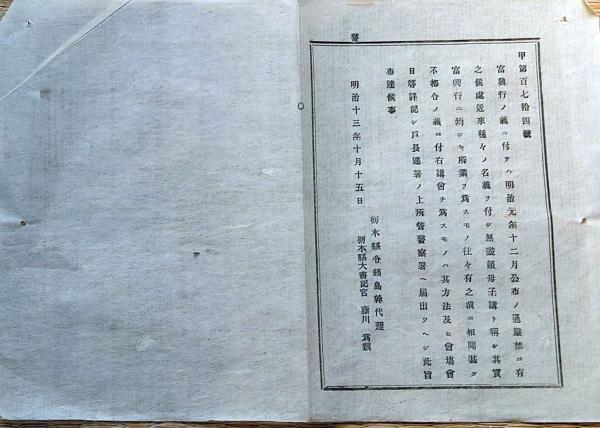 警
甲第百七拾四號
富興行ノ義ニ付テハ明治元年十二月公布ノ通嚴禁ニ有
之候處近來種々ノ名義ヲ付シ無盡頼母子講ト稱シ其實
富興行ニ均シキ所業ヲ為スモノ往々有之哉ニ相聞甚タ
不都合ノ義ニ付右講會ヲ為スモノハ其方法及ヒ會塲會
日等詳記シ戸長連署ノ上所管警察署ヘ届出ツヘシ此旨
布達候事
明治十三年十月十五日
栃木縣令鍋島幹代理
栃木縣大書記官 藤川為親